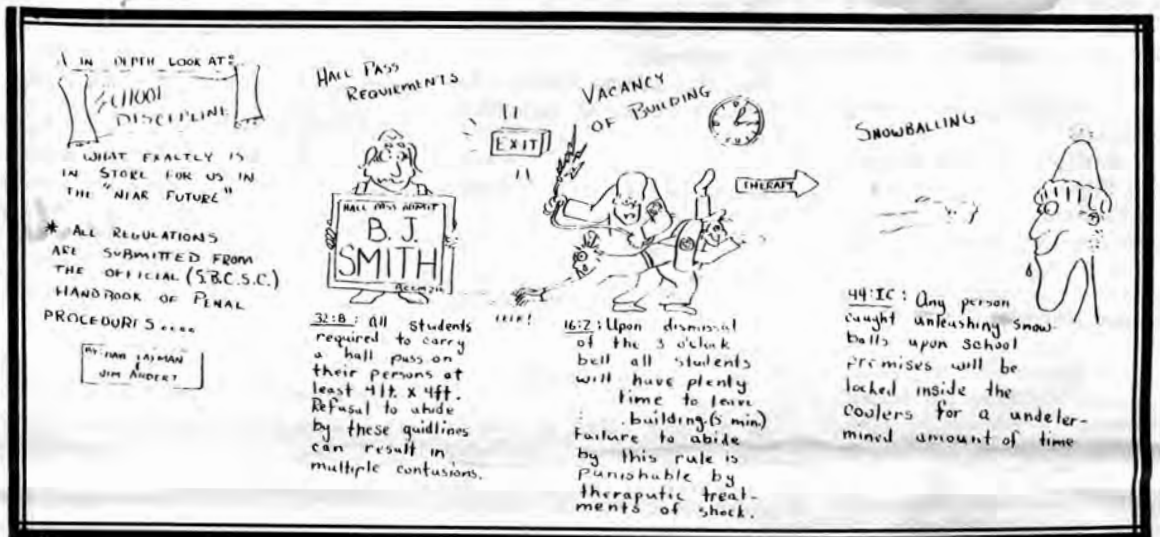 IN DEPTH LOOK AT:
SCHOOL
DISCIPLINE
WHAT EXACTLY IS
IN STORE FOR US IN
THE "NEAR FUTURE"
* ALL REGULATIONS
ARE SUBMITTED FROM
THE OFFICIAL (S.B.C.S.C.)
HANDBOOK OF PENAL
PROCEDURES....
BY: DAN LAYMAN
JIM ANDERT
HALL PASS
REQUIREMENTS
HALL PASS ADMIT
B. J.
SMITH
32:B: All students
required to carry
a hall pass on
their persons at
least 4ft. x 4ft.
Refusal to abide
by these guidlines
can result in
multiple contusions.
VACANCY
OF BUILDING
EXIT
THERAPY
16:Z: Upon dismissal
of the 3 o'clock
bell all students
will have plenty
time to leave
building.(5 min.)
Failure to abide
by this rule is
punishable by
theraputic treat-
ments of shock.
SNOWBALLING
44:IC: Any person
caught unleashing snow
balls upon school
premises will be
locked inside the
coolers for a undeter-
mined amount of time